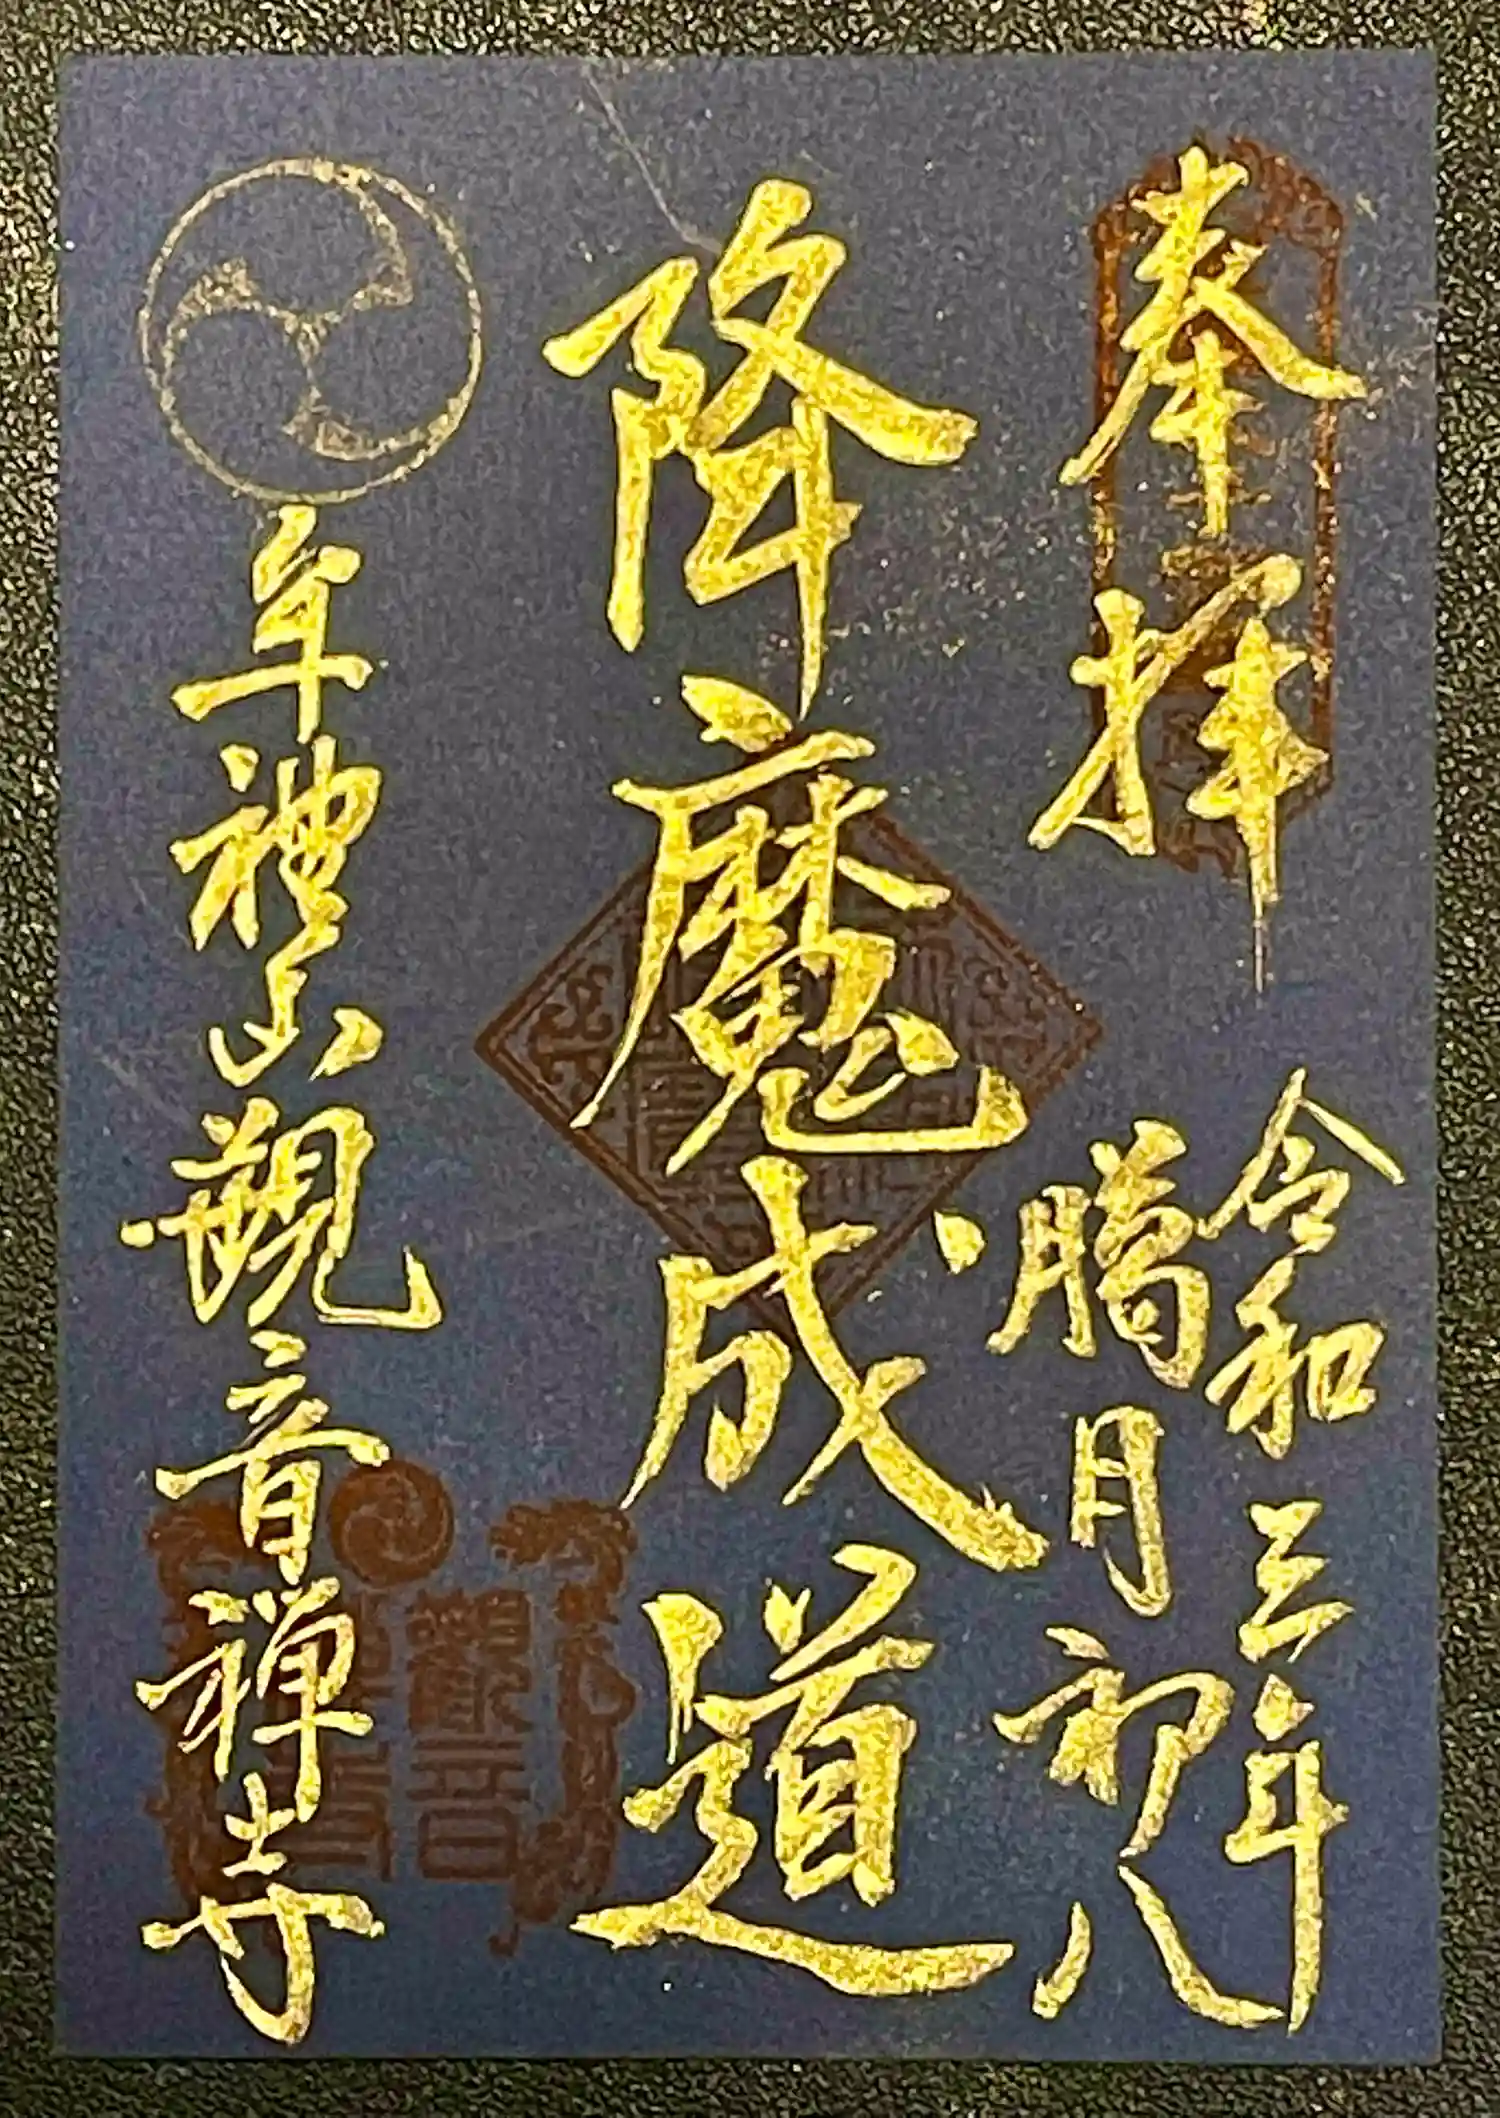 奉拝
令和三年
臘月初八
降魔成道
牟禮山観音禅寺